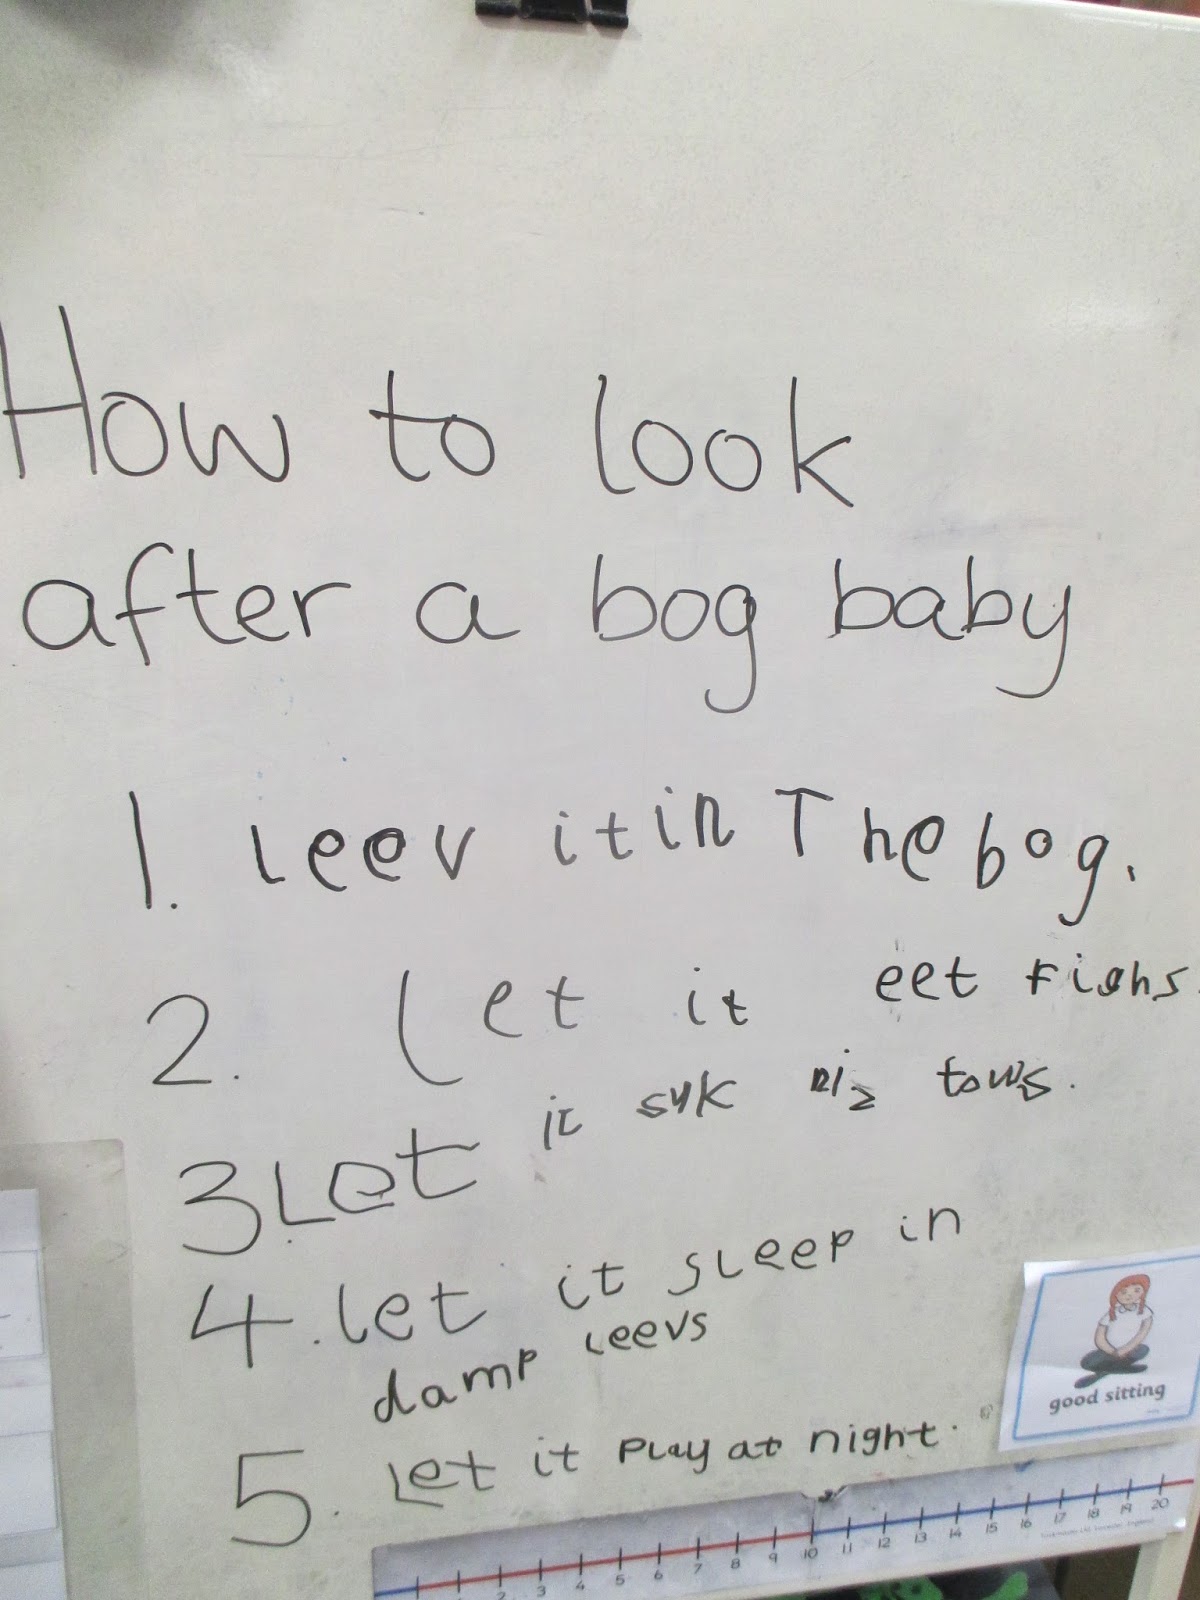 How to look
after a bog baby
1. leev it in The bog.
2. Let it eet fishs.
3 Let it suk niz tows.
4. let it sleep in
damp leevs
5. Let it play at night.
good sitting
2 3 4 5 6 7 8 9 10 11 12 13 14 15 16 17 18 19 20